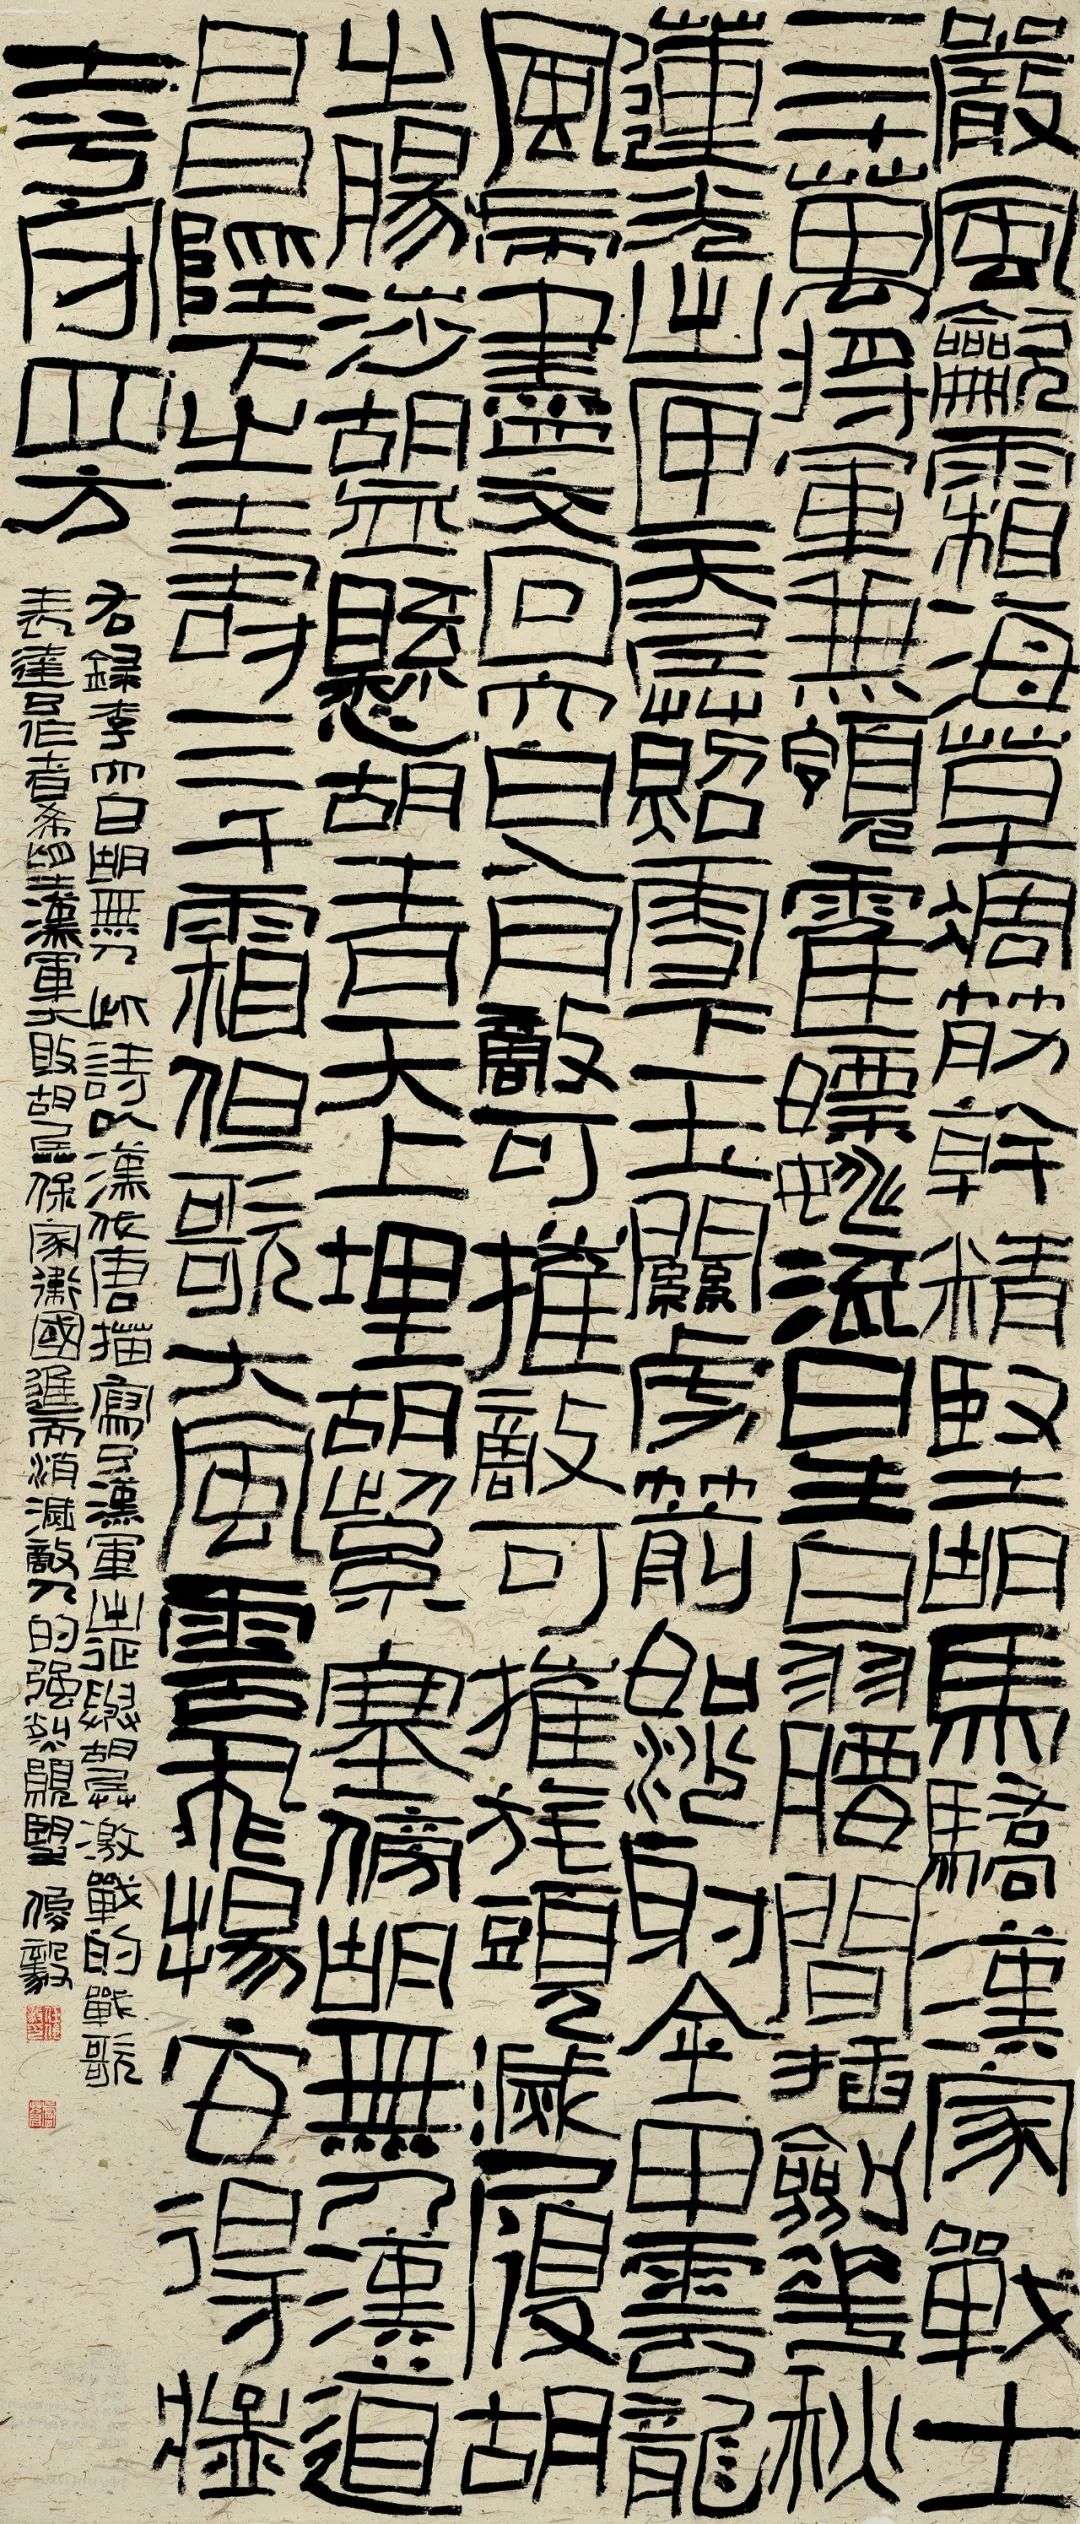 嚴風龡霜海草凋筋幹精堅胡馬驕漢家戰士
三十萬將軍兼領霍嫖姚流星白羽腰間插劍花秋
蓮光出匣天兵照雪下玉關虜箭如沙射金甲雲龍
風虎盡交回太白入月敵可摧敵可摧旄頭滅履胡
之腸涉胡血懸胡青天上埋胡紫塞傍胡無人漢道
昌陛下之壽三千霜但歌大風雲飛揚安得猛
士兮守四方
右録李太白胡無人此詩以漢代唐描寫了漢軍出征與胡兵激戰的戰歌
表達了作者希望漢軍大敗胡兵保家衛國進而消滅敵人的强烈願望 俊毅